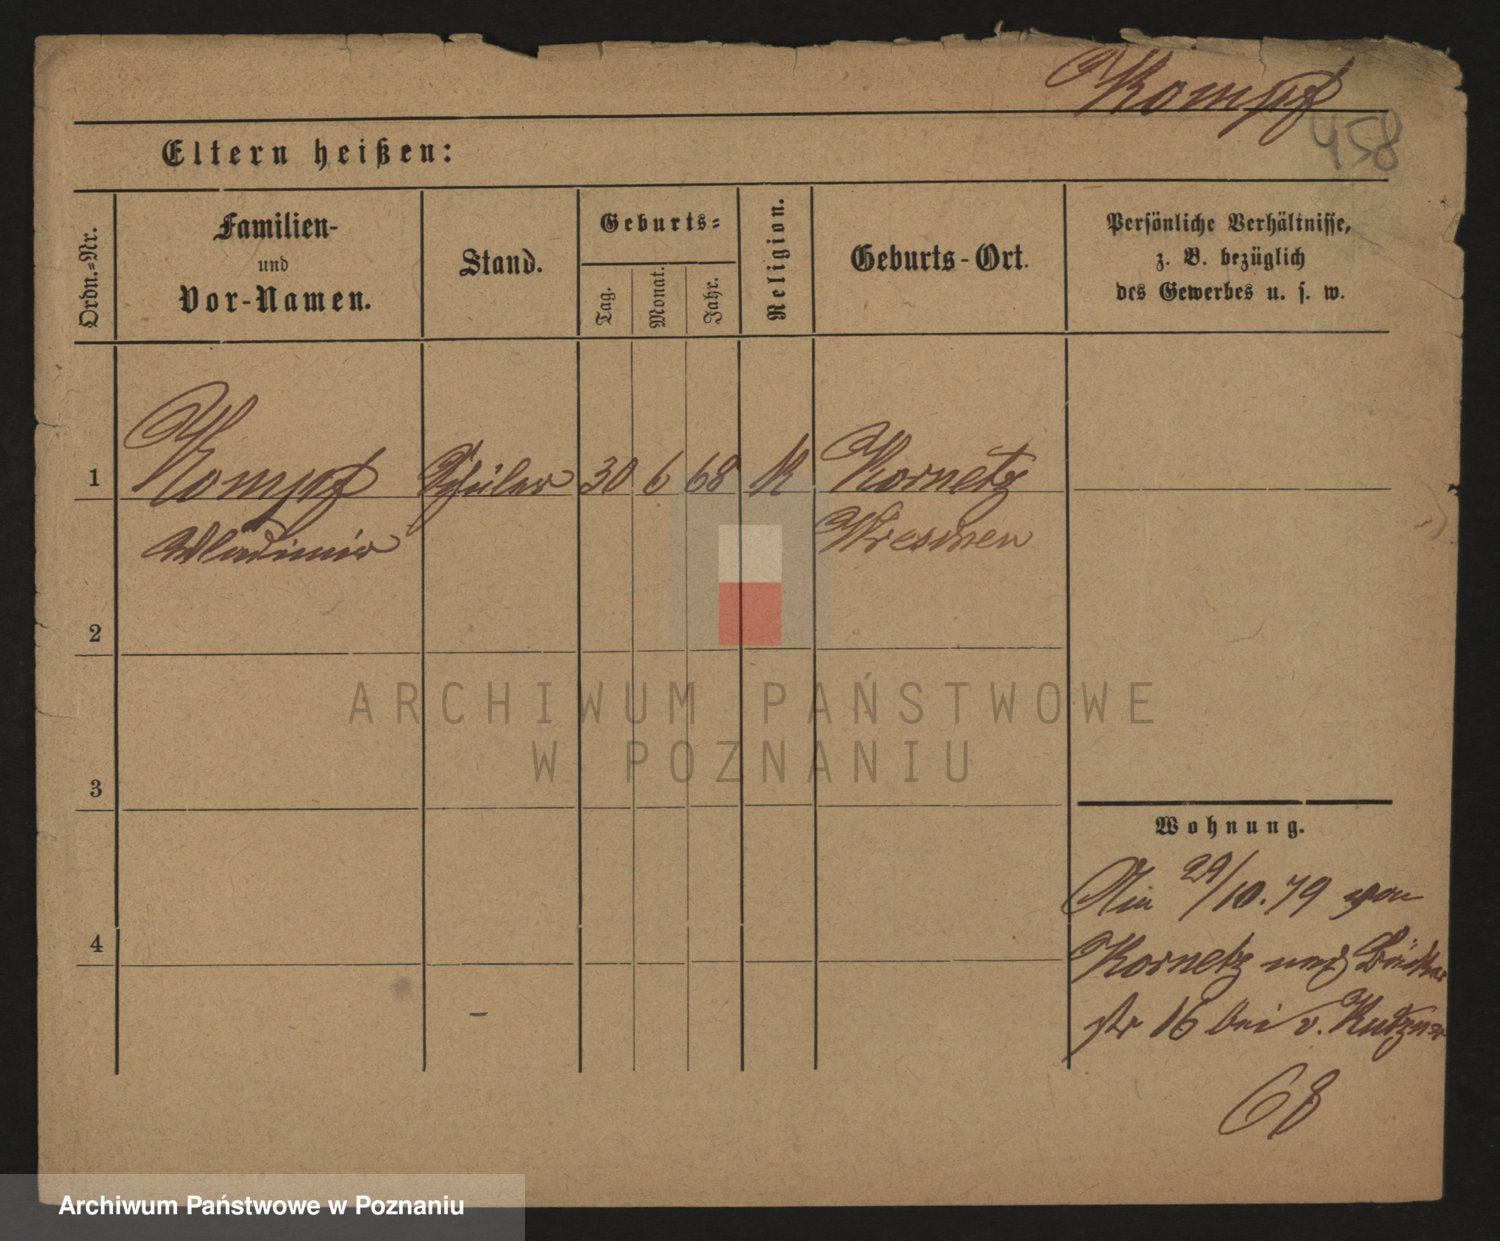 Kompf
458
Eltern heißen:
Ordn.-Nr.
Familien-
und
Vor-Namen.
Stand.
Geburts-
Tag.
Monat.
Jahr.
Religion.
Geburts-Ort.
Persönliche Verhältnisse,
z. B. bezüglich
des Gewerbes u. s. w.
1 Kompf Schüler 30 6 68 K Kornetz
Wladimir Wreschen
2
3
4
ARCHIWUM PAŃSTWOWE
W POZNANIU
Wohnung.
Am 29/10.79 von
Kornetz nach
str 16 bei v. Kutzner
68
Archiwum Państwowe w Poznaniu